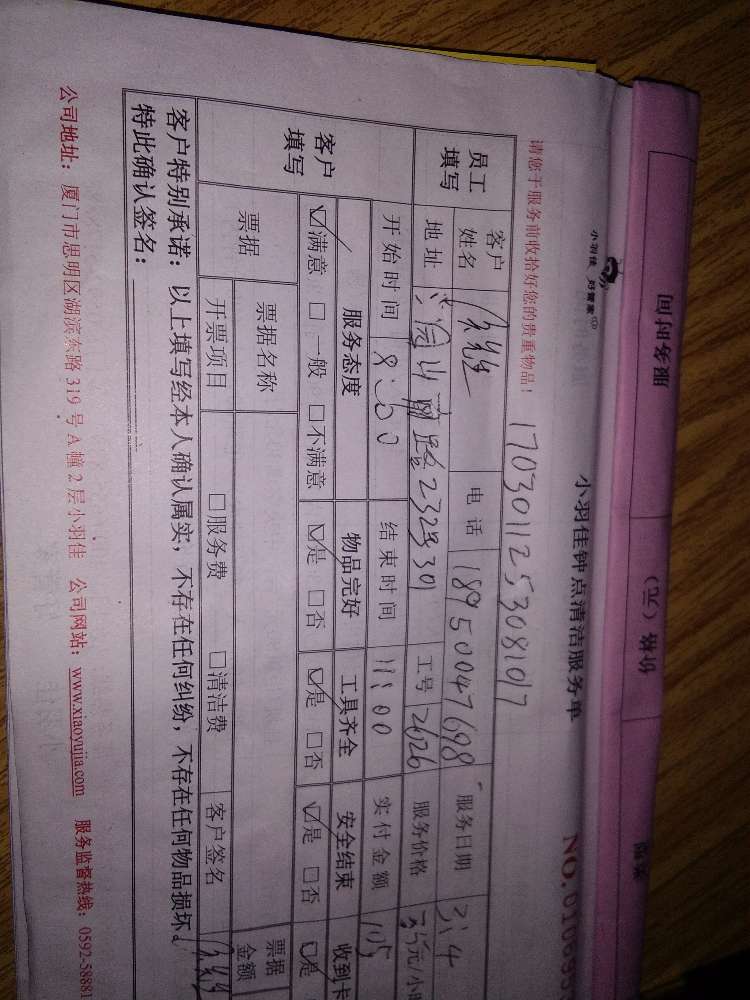 服务时间
价格（元）
小羽佳 好管家
小羽佳钟点清洁服务单
NO.01069
请您于服务前收拾好您的贵重物品！
1703011253081017
员工填写
客户姓名
电话 18950047698
服务日期 3.4
地址 232号301
工号 2626
服务价格 35元/小时
客户填写
开始时间 8:00
结束时间 11:00
实付金额 105
服务态度 物品完好 工具齐全 安全结束 收到卡
☑满意 □一般 □不满意 ☑是 □否 ☑是 □否 ☑是 □否 ☑是
票据
票据名称
票据金额
开票项目 □服务费 □清洁费 客户签名
客户特别承诺：以上填写经本人确认属实，不存在任何纠纷，不存在任何物品损坏
特此确认签名：
公司地址：厦门市思明区湖滨东路319号A幢2层小羽佳 公司网站：www.xiaoyujia.com 服务监督热线：0592-58881